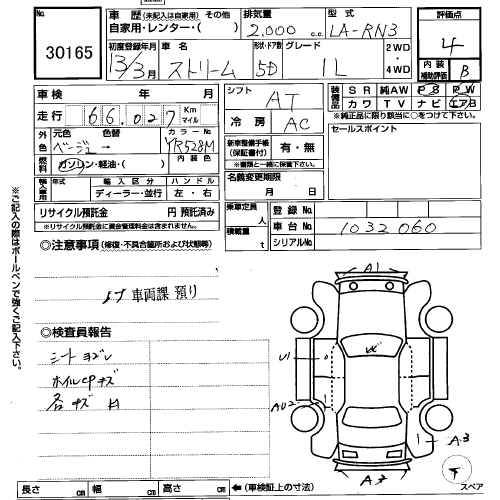 No.
30165
車歴 (未記入は自家用) その他
自家用・レンター・( )
排気量
2,000 c.c.
型式
LA-RN3
評価点
4
初度登録年月
13/3月
車名
ストリーム
形状・ドア数
5D
グレード
1L
2WD
・
4WD
内装
補助評価
B
車検 年 月
走行 66,027 Km
マイル
シフト
AT
装備品
SR 純AW PS PW
カワ TV ナビ エアB
※純正品に限り該当に○をつけて下さい
外色
元色
ベージュ
色替
→
カラーNo.
YR528M
冷房
AC
セールスポイント
燃料
ガソリン・軽油・( )
内装色
新車整備手帳
(保証書付)
有・無
※書類と一緒に保管して下さい。
輸入車用
年式
輸入区分
ディーラー・並行
ハンドル
左・右
名義変更期限
月 日
リサイクル預託金 円 預託済み
※リサイクル預託金に資金管理料金は含まれません。
乗車定員 人
積載量 t
登録No.
車台No. 1032060
シリアルNo.
◎注意事項 (修復・不具合箇所および状態等)
車両課 預り
◎検査員報告
シートヨゴレ
ホイルCPキズ
各キズ
※ご記入の際はボールペンで強くご記入下さい。
A1
U1
W
AU2
A3
A2
スペア
長さ cm 幅 cm 高さ cm ←(車検証上の寸法)